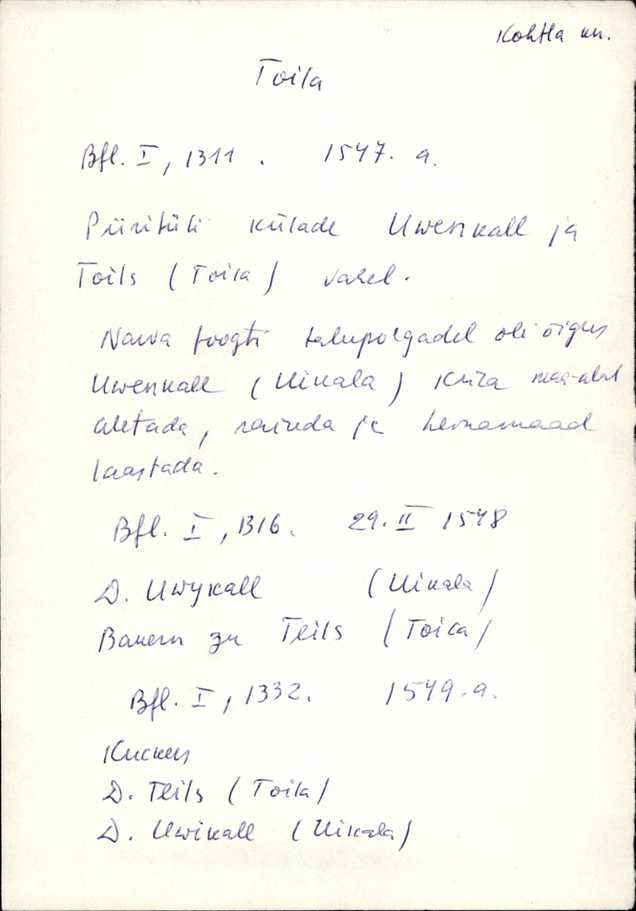 Kohtla kn.
Toila
Bfl. I, 1311. 1547. a.
Piiritüli külade Uwenkall ja
Toils (Toila) vahel.
Narva foogti talupoegadel oli õigus
Uwenkall (Uikala) küla maa-alal
aletada, raiuda ja heinamaad
laastada.
Bfl. I, 1316. 29. II 1548
D. Uwykall (Uikala)
Bauern zu Teils (Toila)
Bfl. I, 1332. 1549. a.
D. Teils (Toila)
D. Uwikall (Uikala)